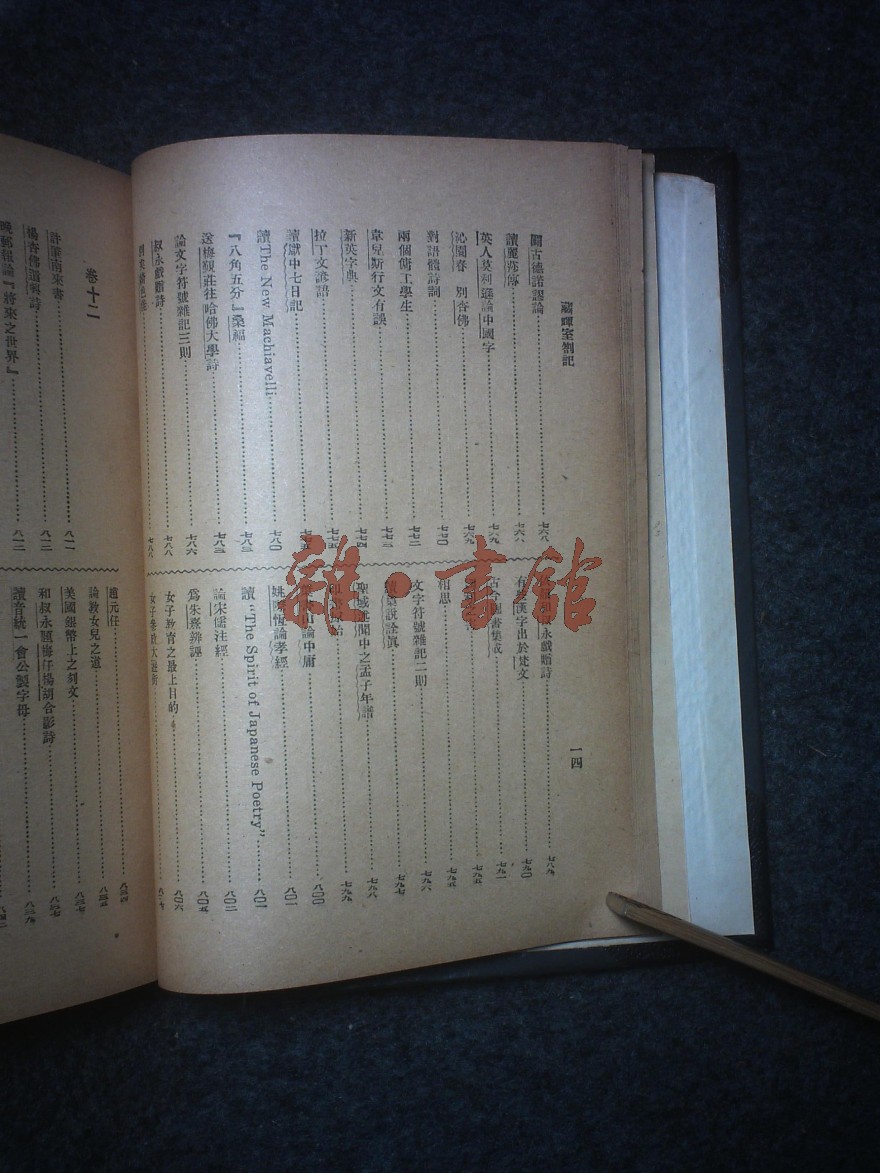 藏暉室劄記
一四
闢古德諾謬論……七六八
讀麗茲傳……七六八
英人莫利遜論中國字……七六九
沁園春　別杏佛……七六九
對語體詩詞……七七〇
兩個傭工學生……七七二
韋兒斯行文有誤……七七三
新英字典……七七四
拉丁文諺語……七七五
讀獄中七日記
讀The New Machiavelli……七八〇
『八角五分』桑福……七八三
送梅覲莊往哈佛大學詩……七八三
論文字符號雜記三則……七八六
叔永戲贈詩……七八八
七八八
永戲贈詩……七八九
有 漢字出於梵文……七九〇
古今圖書集成……七九一
七九五
相思……七九五
文字符號雜記二則……七九六
讀 說詮真……七九七
聖域述聞中之孟子年譜……七九八
七九九
論中庸……八〇〇
姚際恆論孝經……八〇一
讀"The Spirit of Japanese Poetry"……八〇一
論宋儒注經……八〇二
爲朱熹辨誣……八〇五
女子教育之最上目的……八〇六
女子參政大遊街
卷十二
許肇南來書……八一一
楊杏佛遣興詩……八一二
晚郵報論『將來之世界』……八一三
趙元任……八三四
論教女兒之道……八三五
美國銀幣上之刻文……八三七
和叔永題梅任楊胡合影詩……八三七
讀音統一會公製字母……八三九
雜·書館